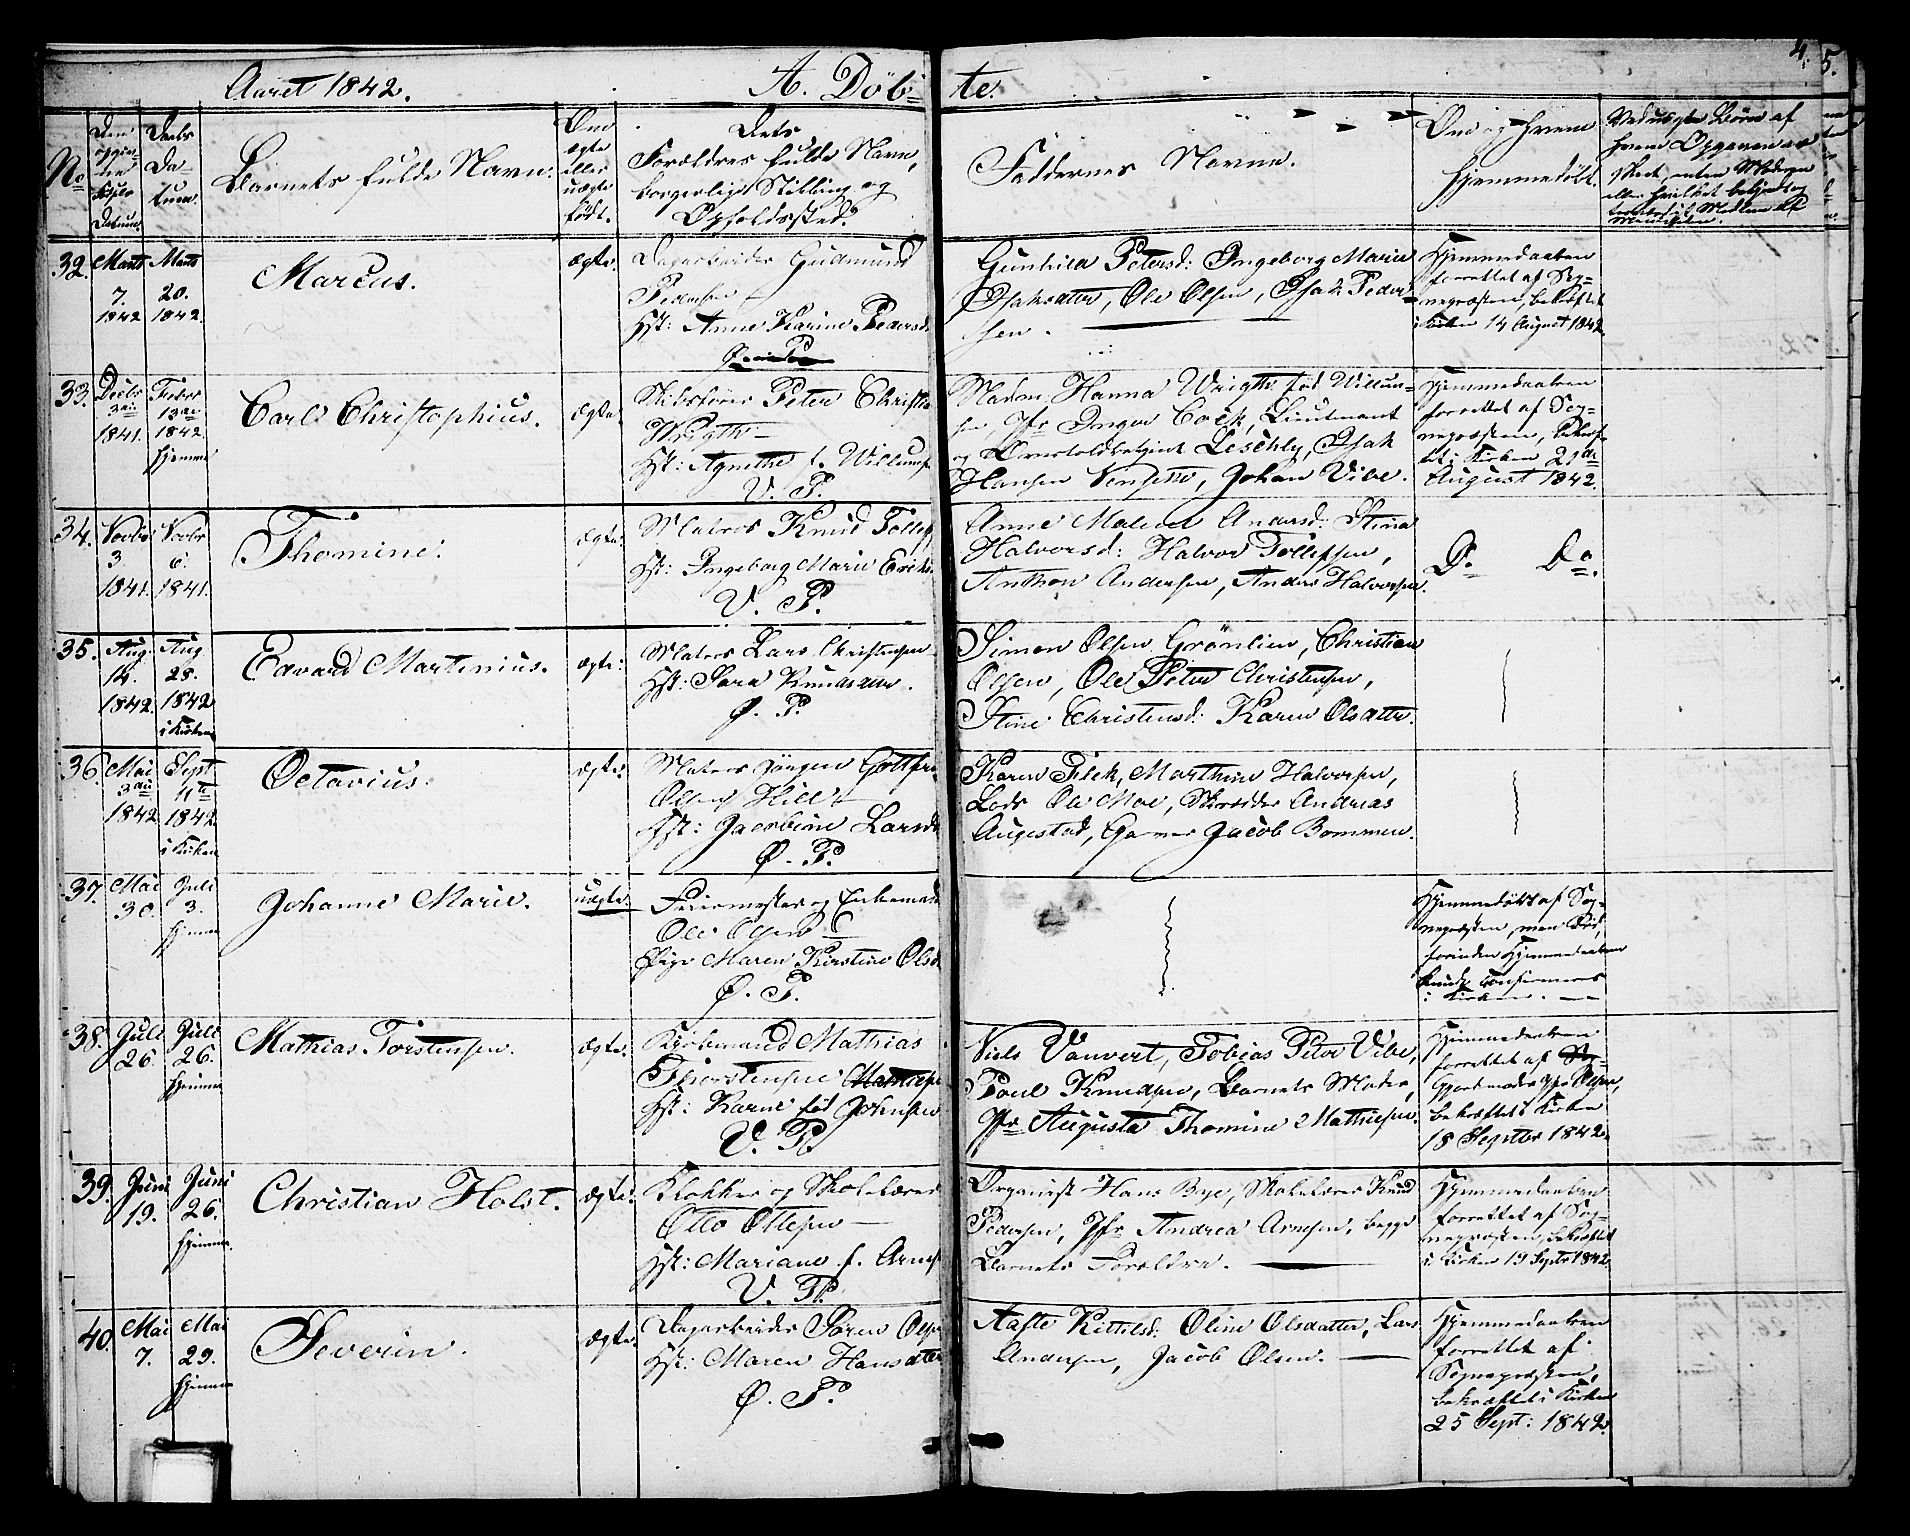 4. 5.
Aaret 1842. A. Döb= te.
No
Den
opgiv=
ne
Føds
Datum
Daabs
Da=
tum.
Barnets fulde Navn.
Om
ægte
eller
uægte
født.
Dets
Forældres fulde Navn,
borgerlige Stilling og
Opholdssted.
Faddernes Navne.
Om og hvem
hjemmedöbt.
32. Marts
7.
1842
Marts
20.
1842.
Marcus.
ægte.
Dagarbeider Gudmund
Pedersen
Hst: Anne Karine Pedersd.
Gunhild Petersd: Ingeborg Marie
Isaksdatter, Ole Olsen, Isak Peder=
sen.
Hjemmedaaben
forrettet af Sog=
nepræsten, bekræftet
i Kirken 14 August 1842.
33. Decbr
3die
1841.
Febr
13de
1842.
hjemme
Carl Christophius.
ægte.
Skibsfører Peter Christi
Wrigth
Hst: Agnethe f. Willums
V. P.
Madm. Hanna Wrigth, född Willum=
sen, Jfr Inger Cock, Lieutnant
og Leschly, Isak
Hansen, Johan Vibe.
Hjemmedaaben
forrettet af Sog=
nepræsten, bekræf=
tet i Kirken 21de
August 1842.
34. Novbr
3.
1841.
Novbr
6.
1841.
Thomine.
ægte.
Matros Knud Tollefs
Hst: Ingeborg Marie Eriks
V. P.
Anne Malene Andersd: Stina
Halvorsd: Halvor Tollefsen,
Anthon Andersen, Anders Halvorsen.
Do. Do.
35. Aug
14.
1842.
Aug
28.
1842
i Kirken
Edvard Martinius.
ægte.
Matros Lars Christensen
Hst: Sara Knudsdatter.
Ø. P.
Simon Olsen Grönlien, Christian
Olsen, Ole Peter Christensen,
Stine Christensd: Karen Olsdatter.
36. Mai
3die
1842
Sept
11te
1842
i Kirken
Octavius.
ægte.
Matros Jörgen Gottfr
Olsen Hill
Hst: Jacobine Larsd
Ø. P.
Karen Flek, Marthine Halvorsen,
Lods Ole Moe, Skredder Andreas
Augestad, Garver Jacob Bommen.
37. Mai
30.
Juli
3.
hjemme
Johanne Marie.
uægte.
Feiermester og Enkemand
Ole Olsen
Pige Maren Kirstine Olsd
Ø. P.
Hjemmedöbt af Sog=
nepræsten, men död,
forinden Hjemmedaaben
kunde confirmeres
i Kirken.
38. Juli
26.
Juli
26.
hjemme
Mathias Torstensen.
ægte.
Kjøbmand Mathias
Thorstensen Mathiesen
Hst: Karen föd Johnsen
V. P.
Niels Vauvert, Tobias Peter Vibe,
Poul Knudsen, Barnets Moder,
Jfr Augusta Thomine Mathiesen.
Hjemmedaaben
forrettet af Sog
Gjordemoder Olsen,
bekræftet i Kirken
18 Septbr 1842.
39. Juni
19.
Juni
26.
hjemme.
Christian Holst.
ægte.
Klokker og Skolelærer
Otto Ottesen
Hst: Mariane f. Arnes
V. P.
Organist Hans Bye, Skolelærer Knud
Pedersen, Jfr Andrea Arnesen, begge
Barnets Forældre.
Hjemmedaaben
forrettet af Sog=
nepræsten, bekræftet
i Kirken 19 Septbr 1842
40. Mai
7.
Mai
29.
hjemme
Severin.
ægte.
Dagarbeider Sören Olsen
Hst: Maren Hansdatter
Ø. P.
Aaste Kittilsd: Oline Olsdatter, Lars
Andersen, Jacob Olsen.
Hjemmedaaben
forrettet af
Sognepræsten,
bekræftet i Kirken
25 Sept: 1842.